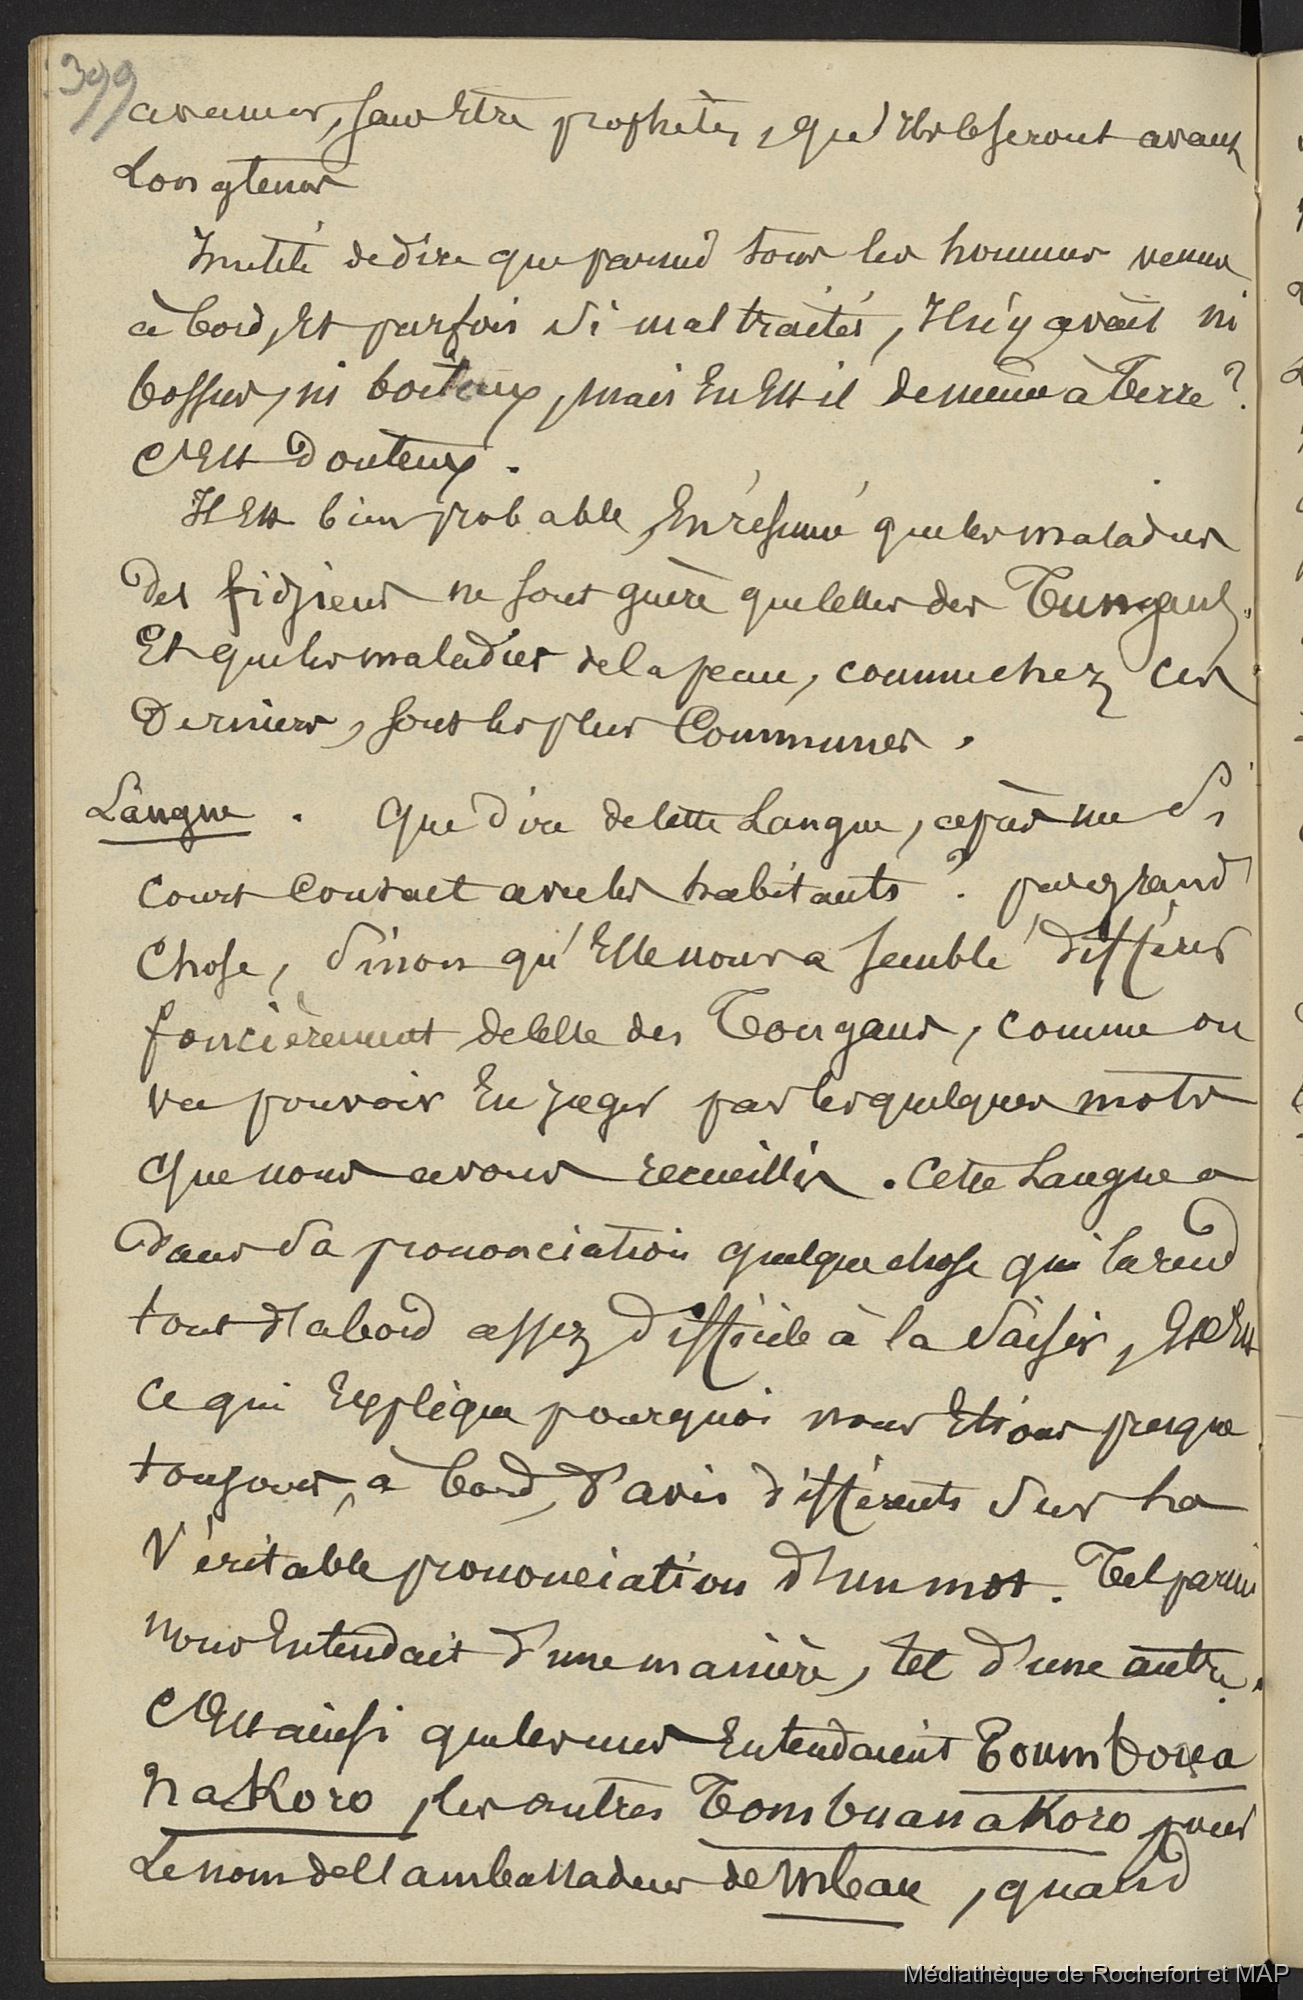 399
avancer, sans Etre prophètes, qu'ils le seront avant
Longtems
Inutile de dire que parmi tous les hommes venus
à bord, Et parfois si maltraités, Il n'y avait ni
bossus, ni boiteux, mais En Est il de même à Terre ?
C'Est Douteux.
Il Est bien probable, En résumé que les maladies
Des fidjiens ne sont guère que celles des Tungans,
Et que les maladies de la peau, comme chez ces
Derniers, sont les plus Communes.
Langue. Que Dire de cette Langue, après un si
court Contact avec les habitants ? pas grand
Chose, sinon qu'Elle nous a semblé différer
foncièrement de celle des Tongans, comme on
va pouvoir En juger par les quelques mots
que nous avons recueillis. Cette Langue a
Dans sa prononciation quelque chose qui la rend
tout d'abord assez Difficile à la saisir, Et c'Est
ce qui Explique pourquoi nous Etions presque
toujours, à bord, d'avis différents sur la
Véritable prononciation d'un mot. Tel parmi
nous Entendait d'une manière, tel d'une autre.
C'Est ainsi que les uns Entendaient Toumboua
nakoro, les autres Tombuanakoro, pour
Le nom de l'ambassadeur de Mbau, quand
Médiathèque de Rochefort et MAP